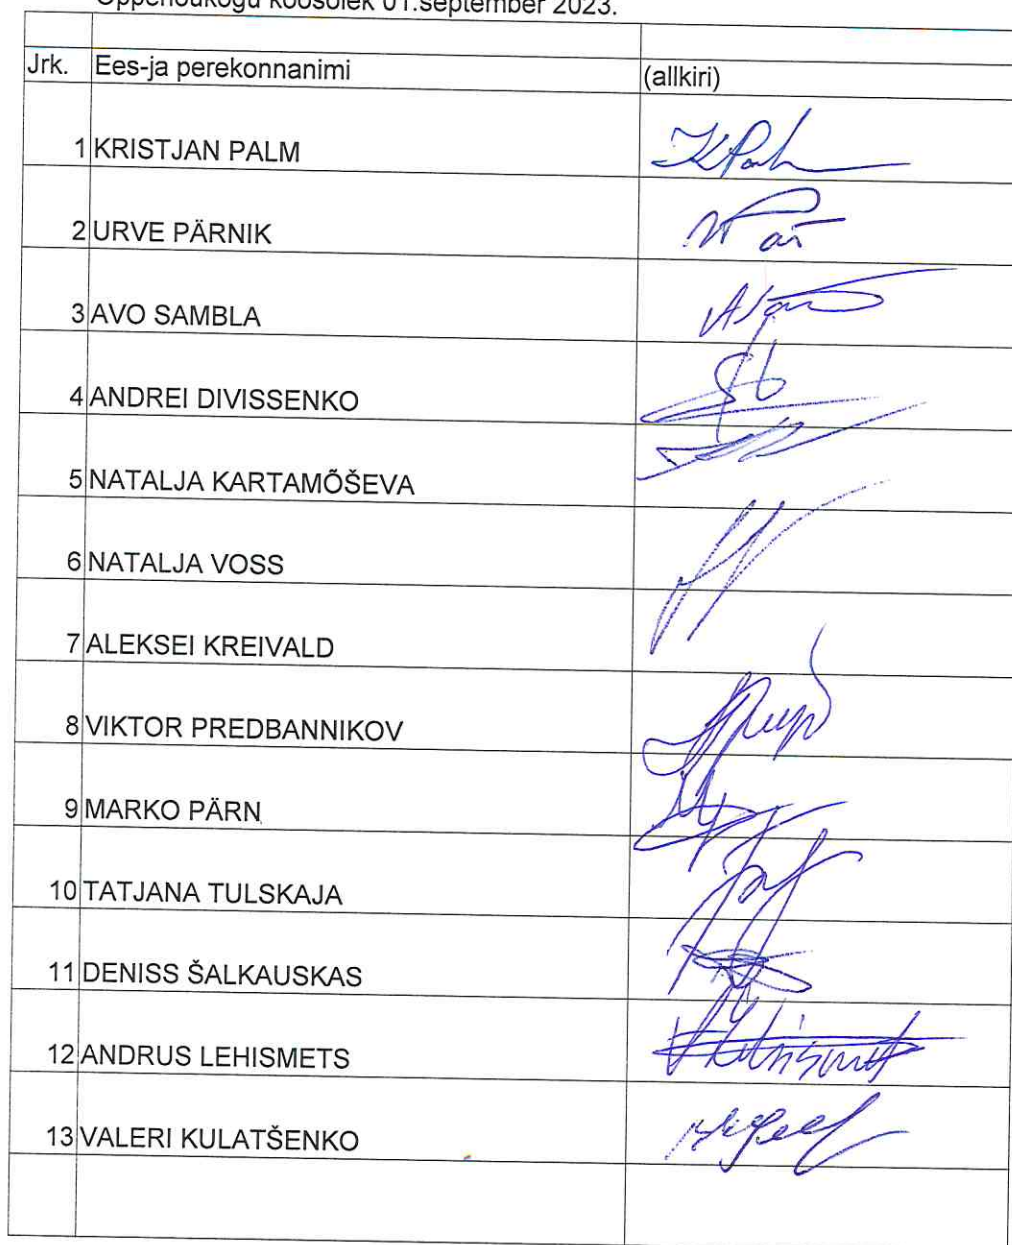 Õppenõukogu koosolek 01.september 2023.
Jrk. Ees-ja perekonnanimi (allkiri)
1 KRISTJAN PALM
2 URVE PÄRNIK
3 AVO SAMBLA
4 ANDREI DIVISSENKO
5 NATALJA KARTAMÕŠEVA
6 NATALJA VOSS
7 ALEKSEI KREIVALD
8 VIKTOR PREDBANNIKOV
9 MARKO PÄRN
10 TATJANA TULSKAJA
11 DENISS ŠALKAUSKAS
12 ANDRUS LEHISMETS
13 VALERI KULATŠENKO